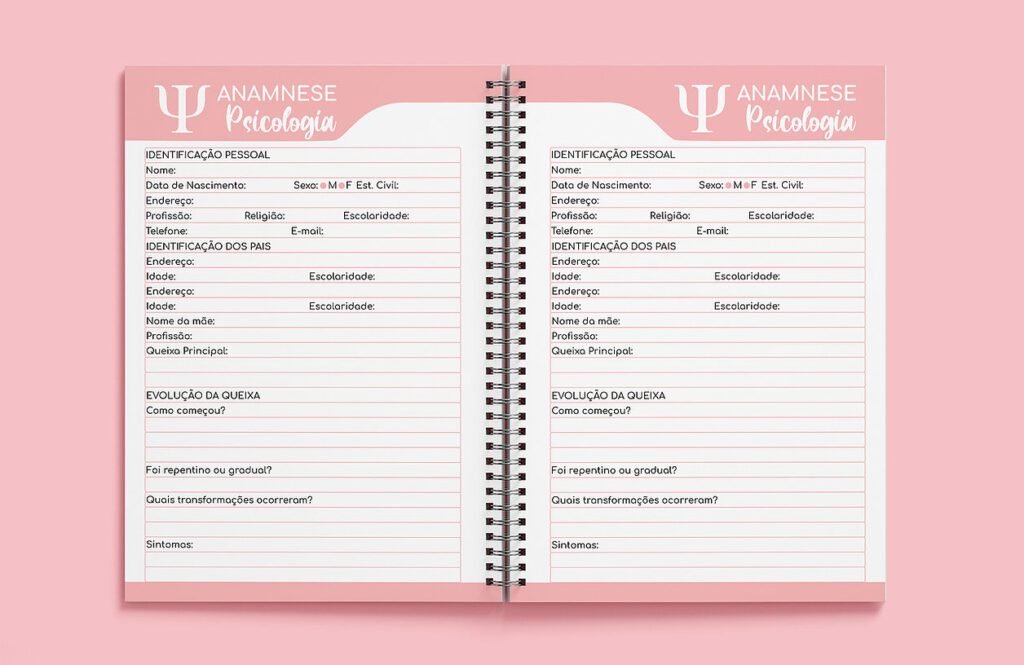 Ψ ANAMNESE
Psicologia
IDENTIFICAÇÃO PESSOAL
Nome:
Data de Nascimento: Sexo: M F Est. Civil:
Endereço:
Profissão: Religião: Escolaridade:
Telefone: E-mail:
IDENTIFICAÇÃO DOS PAIS
Endereço:
Idade: Escolaridade:
Endereço:
Idade: Escolaridade:
Nome da mãe:
Profissão:
Queixa Principal:
EVOLUÇÃO DA QUEIXA
Como começou?
Foi repentino ou gradual?
Quais transformações ocorreram?
Sintomas:
Ψ ANAMNESE
Psicologia
IDENTIFICAÇÃO PESSOAL
Nome:
Data de Nascimento: Sexo: M F Est. Civil:
Endereço:
Profissão: Religião: Escolaridade:
Telefone: E-mail:
IDENTIFICAÇÃO DOS PAIS
Endereço:
Idade: Escolaridade:
Endereço:
Idade: Escolaridade:
Nome da mãe:
Profissão:
Queixa Principal:
EVOLUÇÃO DA QUEIXA
Como começou?
Foi repentino ou gradual?
Quais transformações ocorreram?
Sintomas: